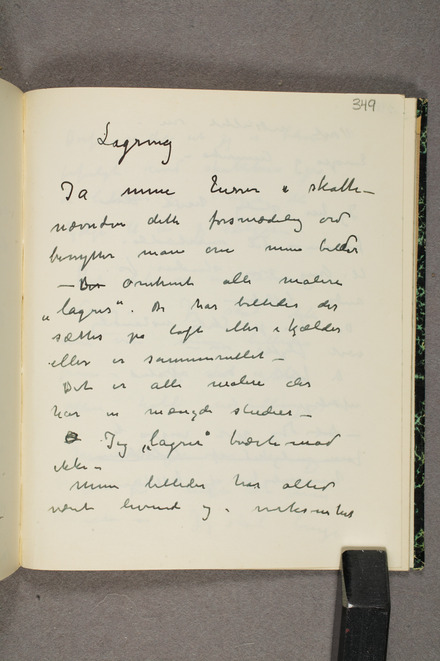 349
Lagring
Ja mine Herrer i skatte-
nævnden dette forsmædelig ord
benytter man om mine billeder
— omtrent alle malere
"lagrer". De har billeder der
sættes på loft eller i kjælder
eller er sammenrullet —
Det er alle malere der
har en mængde studier —
Jeg "lagrer" hverken mad
ikke —
Mine billeder har altid
været levende og i